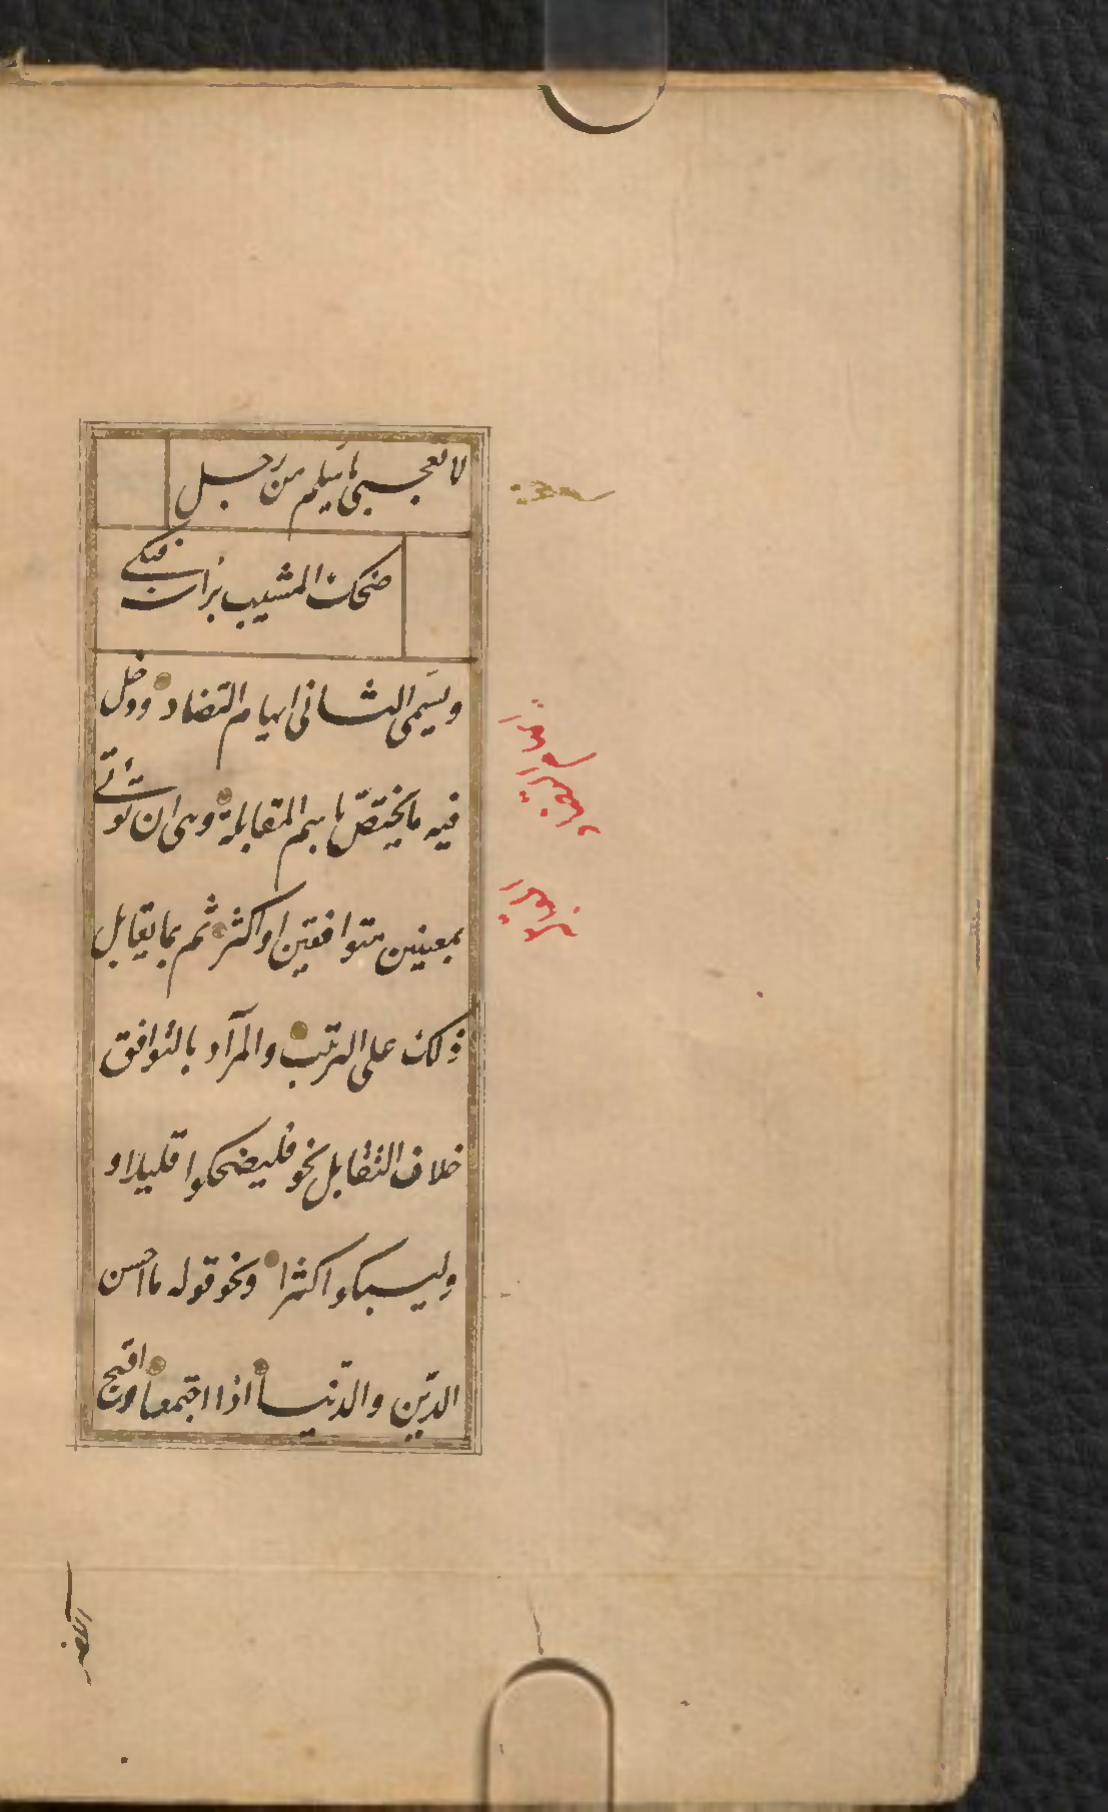 لا تعجبی یا سلم من رجل
ضحک المشیب براسه فبکی
ویسمّی الثانی ایهام التضاد ودخل
فیه ما یختصّ باسم المقابلة وهی ان یؤتی
بمعنیین متوافقین او اکثر ثم بما یقابل
ذلک علی الترتیب والمراد بالتوافق
خلاف التقابل نحو فلیضحکوا قلیلا و
ولیبکوا کثیرا ونحو قوله ما احسن
الدّین والدّنیا اذا اجتمعا واقبح